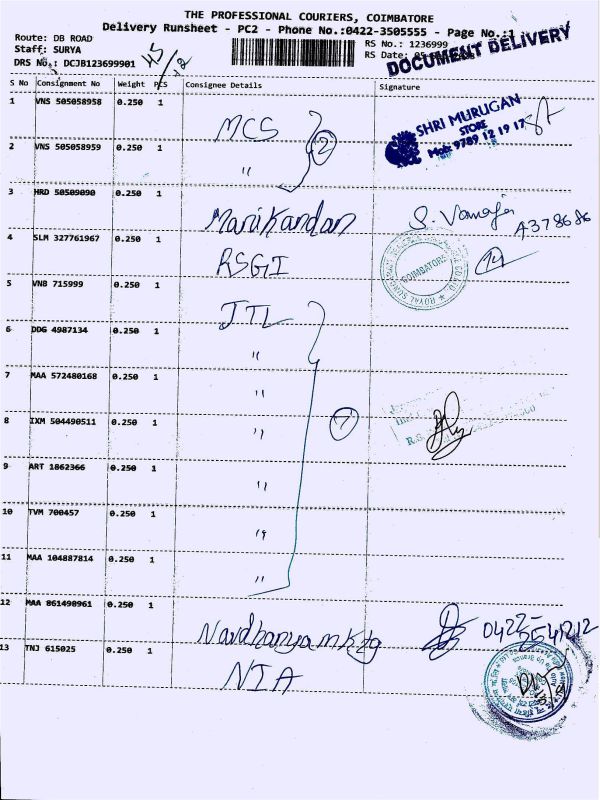 THE PROFESSIONAL COURIERS, COIMBATORE
Delivery Runsheet - PC2 - Phone No.:0422-3505555 - Page No.:1
Route: DB ROAD
Staff: SURYA
DRS No.: DCJB123699901
RS No.: 1236999
RS Date: 05
DOCUMENT DELIVERY
S No Consignment No Weight PCS Consignee Details Signature
1 VNS 505058958 0.250 1 MCS
SHRI MURUGAN
STORE
Mob: 9789 12 19 17
2 VNS 505058959 0.250 1 " 2
3 HRD 50509090 0.250 1 Manikandan S. Vanaja A378686
4 SLM 327761967 0.250 1 RSGI
COIMBATORE
5 VNB 715999 0.250 1 JTL
6 DDG 4987134 0.250 1 "
7 MAA 572480168 0.250 1 "
8 IXM 504490511 0.250 1 " 7
9 ART 1862366 0.250 1 "
10 TVM 700457 0.250 1 "
11 MAA 104887814 0.250 1 "
12 MAA 861498961 0.250 1 Navdhanya mktg 0422-2541212
13 TNJ 615025 0.250 1 NIA